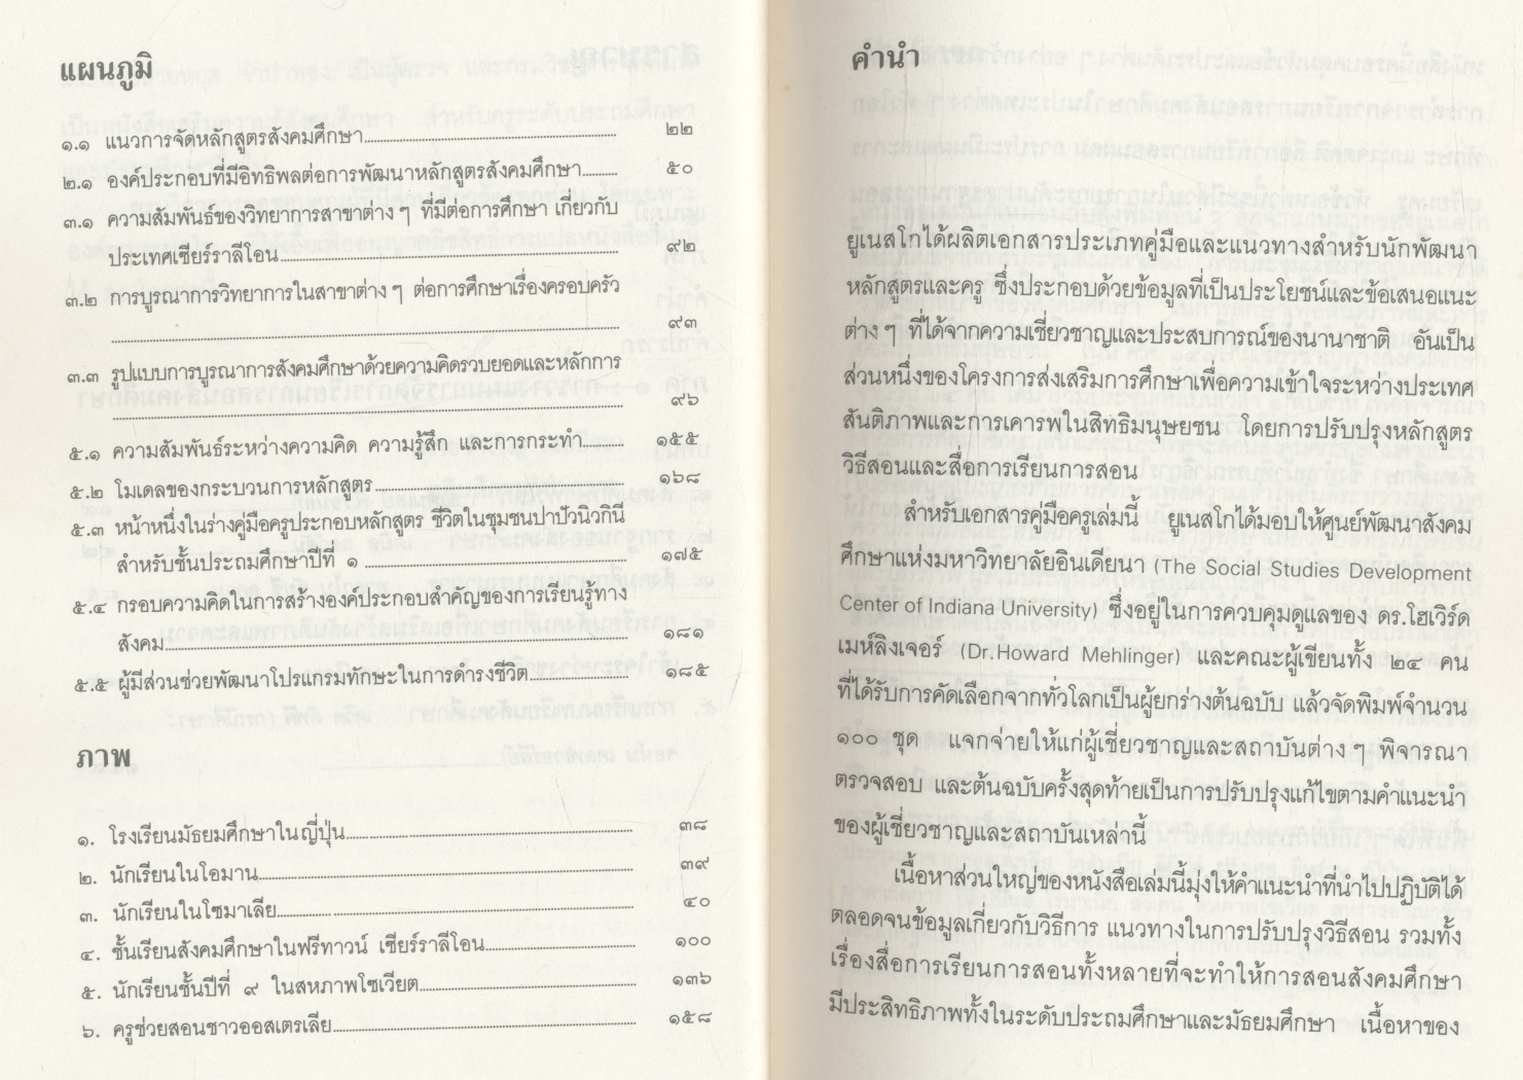 แผนภูมิ
๑.๑ แนวการจัดหลักสูตรสังคมศึกษา ๒๒
๒.๑ องค์ประกอบที่มีอิทธิพลต่อการพัฒนาหลักสูตรสังคมศึกษา ๕๐
๓.๑ ความสัมพันธ์ของวิทยาการสาขาต่างๆ ที่มีต่อการศึกษา เกี่ยวกับ
ประเทศเซียร์ราลีโอน ๙๒
๓.๒ การบูรณาการวิทยาการในสาขาต่างๆ ต่อการศึกษาเรื่องครอบครัว
๙๓
๓.๓ รูปแบบการบูรณาการสังคมศึกษาด้วยความคิดรวบยอดและหลักการ
๙๖
๕.๑ ความสัมพันธ์ระหว่างความคิด ความรู้สึก และการกระทำ ๑๕๕
๕.๒ โมเดลของกระบวนการหลักสูตร ๑๖๘
๕.๓ หน้าหนึ่งในร่างคู่มือครูประกอบหลักสูตร ชีวิตในชุมชนปาปัวนิวกินี
สำหรับชั้นประถมศึกษาปีที่ ๑ ๑๗๕
๕.๔ กรอบความคิดในการสร้างองค์ประกอบสำคัญของการเรียนรู้ทาง
สังคม ๑๘๑
๕.๕ ผู้มีส่วนช่วยพัฒนาโปรแกรมทักษะในการดำรงชีวิต ๑๘๕
ภาพ
๑. โรงเรียนมัธยมศึกษาในญี่ปุ่น ๓๘
๒. นักเรียนในโอมาน ๓๙
๓. นักเรียนในโซมาเลีย ๔๐
๔. ชั้นเรียนสังคมศึกษาในฟรีทาวน์ เซียร์ราลีโอน ๑๐๐
๕. นักเรียนชั้นปีที่ ๙ ในสหภาพโซเวียต ๑๓๖
๖. ครูช่วยสอนชาวออสเตรเลีย ๑๕๘
คำนำ
ยูเนสโกได้ผลิตเอกสารประเภทคู่มือและแนวทางสำหรับนักพัฒนา
หลักสูตรและครู ซึ่งประกอบด้วยข้อมูลที่เป็นประโยชน์และข้อเสนอแนะ
ต่างๆ ที่ได้จากความเชี่ยวชาญและประสบการณ์ของนานาชาติ อันเป็น
ส่วนหนึ่งของโครงการส่งเสริมการศึกษาเพื่อความเข้าใจระหว่างประเทศ
สันติภาพและการเคารพในสิทธิมนุษยชน โดยการปรับปรุงหลักสูตร
วิธีสอนและสื่อการเรียนการสอน
สำหรับเอกสารคู่มือครูเล่มนี้ ยูเนสโกได้มอบให้ศูนย์พัฒนาสังคม
ศึกษาแห่งมหาวิทยาลัยอินเดียนา (The Social Studies Development
Center of Indiana University) ซึ่งอยู่ในการควบคุมดูแลของ ดร.โฮเวิร์ด
เมห์ลิงเจอร์ (Dr.Howard Mehlinger) และคณะผู้เขียนทั้ง ๒๔ คน
ที่ได้รับการคัดเลือกจากทั่วโลกเป็นผู้ยกร่างต้นฉบับ แล้วจัดพิมพ์จำนวน
๑๐๐ ชุด แจกจ่ายให้แก่ผู้เชี่ยวชาญและสถาบันต่างๆ พิจารณา
ตรวจสอบ และต้นฉบับครั้งสุดท้ายเป็นการปรับปรุงแก้ไขตามคำแนะนำ
ของผู้เชี่ยวชาญและสถาบันเหล่านี้
เนื้อหาส่วนใหญ่ของหนังสือเล่มนี้มุ่งให้คำแนะนำที่นำไปปฏิบัติได้
ตลอดจนข้อมูลเกี่ยวกับวิธีการ แนวทางในการปรับปรุงวิธีสอน รวมทั้ง
เรื่องสื่อการเรียนการสอนทั้งหลายที่จะทำให้การสอนสังคมศึกษา
มีประสิทธิภาพทั้งในระดับประถมศึกษาและมัธยมศึกษา เนื้อหาของ